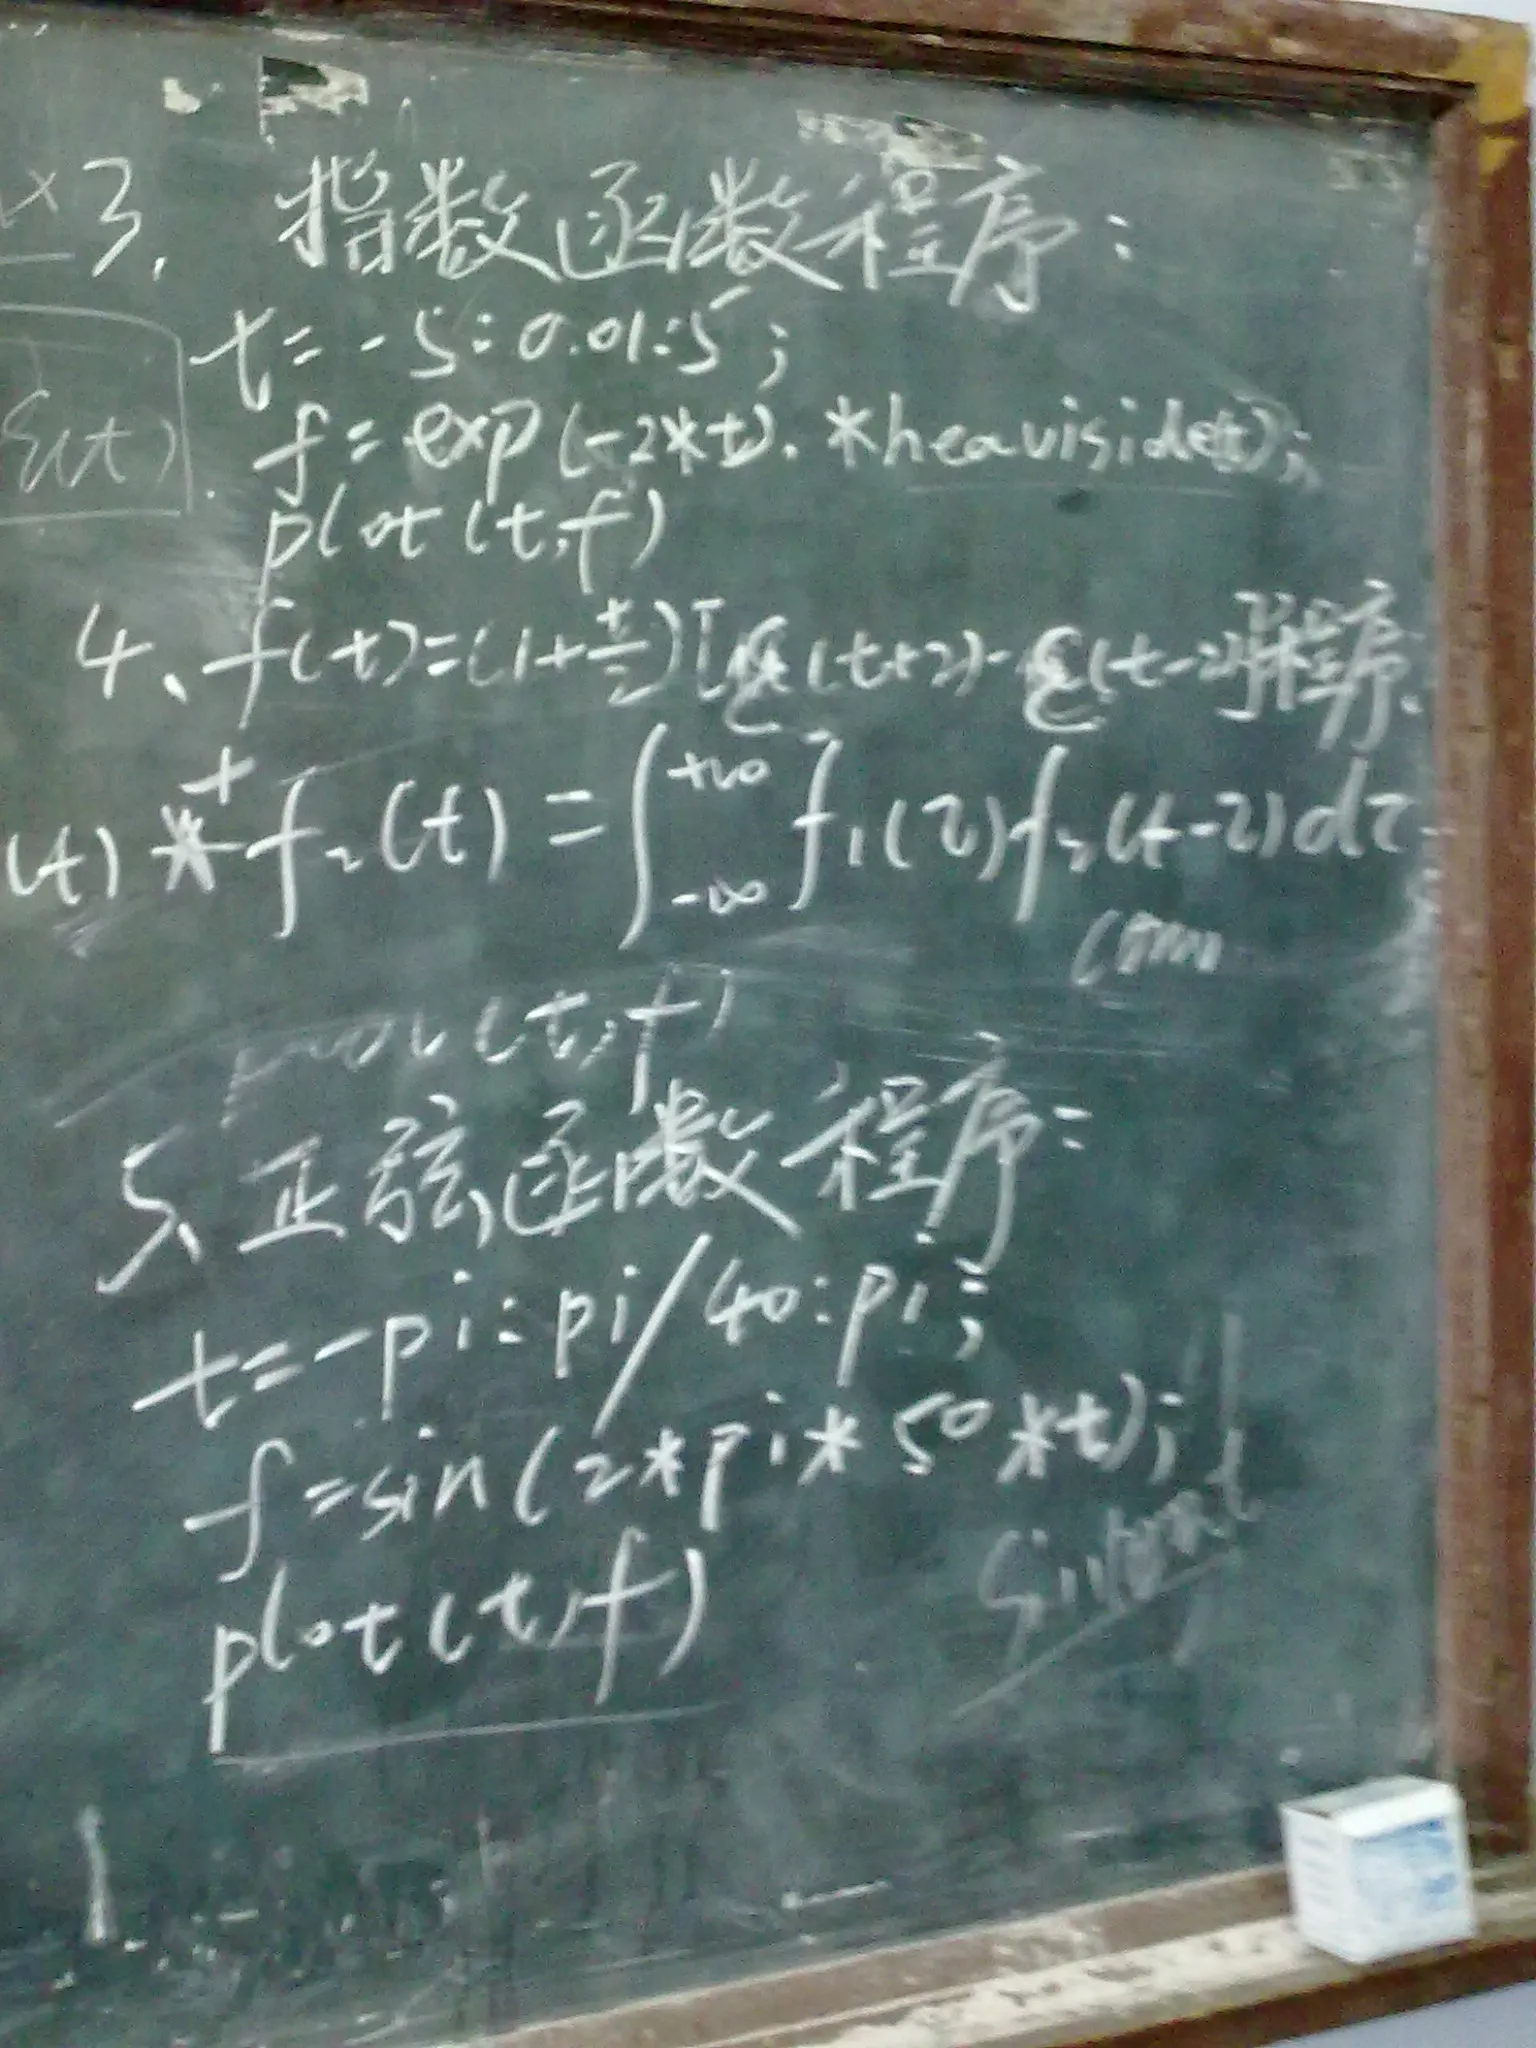 3. 指数函数程序:
t=-5:0.01:5;
ε(t)
f=exp(-2*t).*heaviside(t);
plot(t,f)
4、f(t)=(1+t/2)[ε(t+2)-ε(t-2)]程序.
(t) * f₂(t) = ∫_{-∞}^{+∞} f₁(τ)f₂(t-τ)dτ
(t,f)
5、正弦函数程序:
t=-pi:pi/40:pi;
f=sin(2*pi*50*t);
plot(t,f)